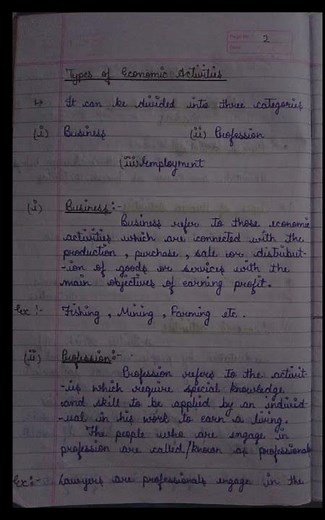 2
Types of Economic Activities
↳ It can be divided into three categories
(i) Business (ii) Profession
(iii) employment
(i) Business:-
Business refer to those economic
activities which are connected with the
production, purchase, sale or distribut-
-ion of goods or services with the
main objectives of earning profit.
Ex:- Fishing, Mining, Farming etc.
(ii) Profession:-
Profession refers to the activit-
-ies which require special knowledge
and skill to be applied by an individ-
-ual in his work to earn a living.
The people who are engage in
profession are called/known as professional
Ex:- Lawyers are professionals engage in the